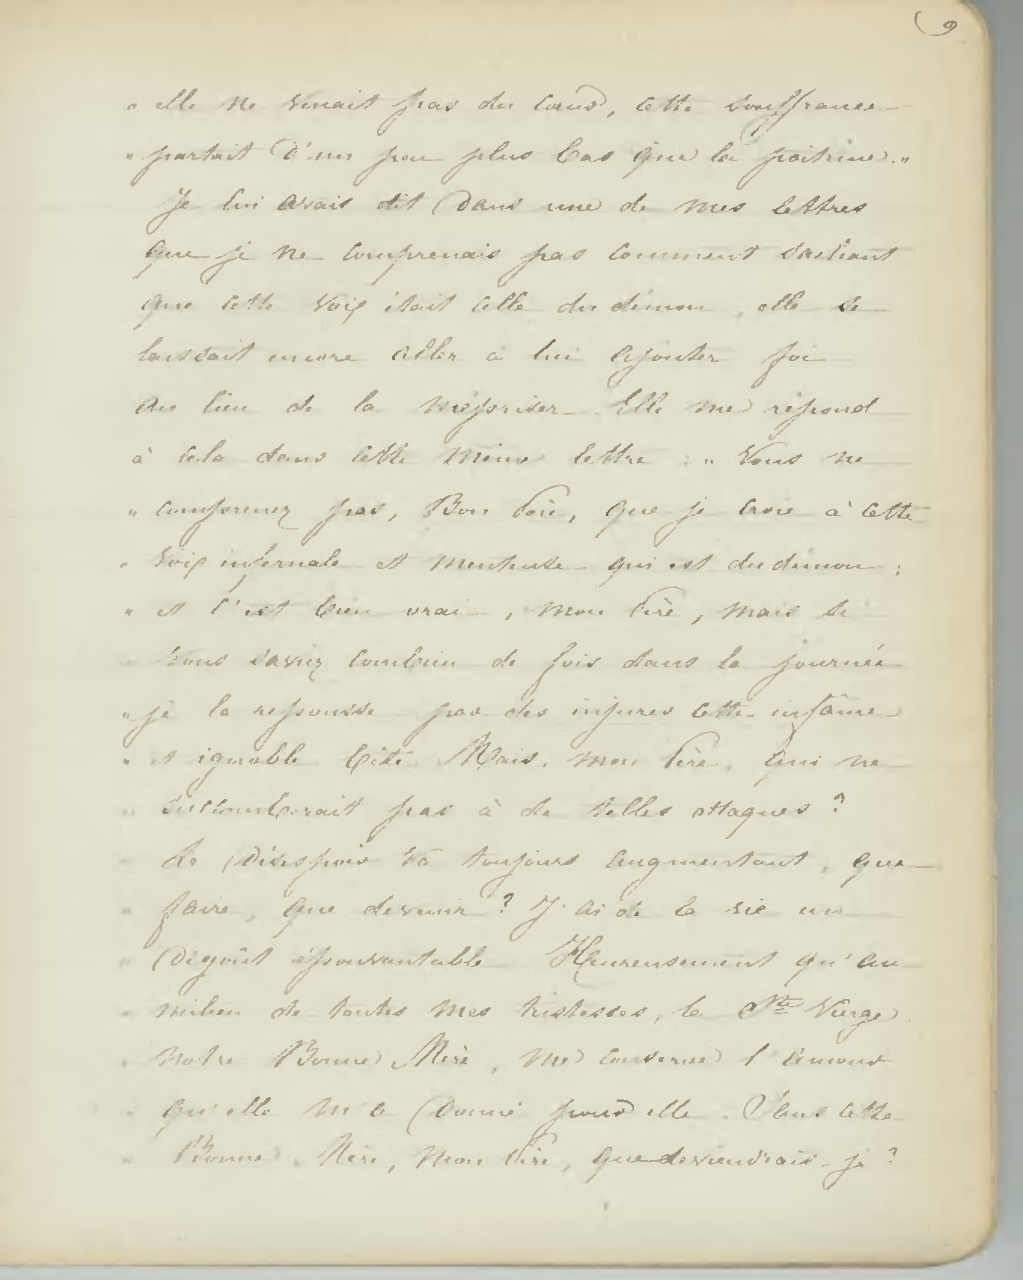 9
" elle ne venait pas du cœur, cette souffrance
" partait d'un peu plus bas que la poitrine. "
Je lui avais dit dans une de mes lettres
que je ne comprenais pas comment sachant
que cette voix était celle du démon, elle se
laissait encore aller à lui ajouter foi
au lieu de la mépriser. Elle me répond
à cela dans cette même lettre : " Vous ne
" comprenez pas, Bon Père, que je croie à cette
" voix infernale et menteuse qui est du démon ;
" et c'est bien vrai, mon Père, mais si
" vous saviez combien de fois dans la journée
" je la repousse par des injures cette infâme
" et ignoble bête. Mais, mon Père, qui ne
" succomberait pas à de telles attaques ?
" Le désespoir va toujours augmentant, que
" faire, que devenir ? J'ai de la vie un
" dégoût épouvantable. Heureusement qu'au
" milieu de toutes mes tristesses, la Ste Vierge
" notre Bonne Mère, me conserve l'amour
" qu'elle m'a donné pour elle. Sans cette
" Bonne Mère, mon Père, que deviendrais-je ?